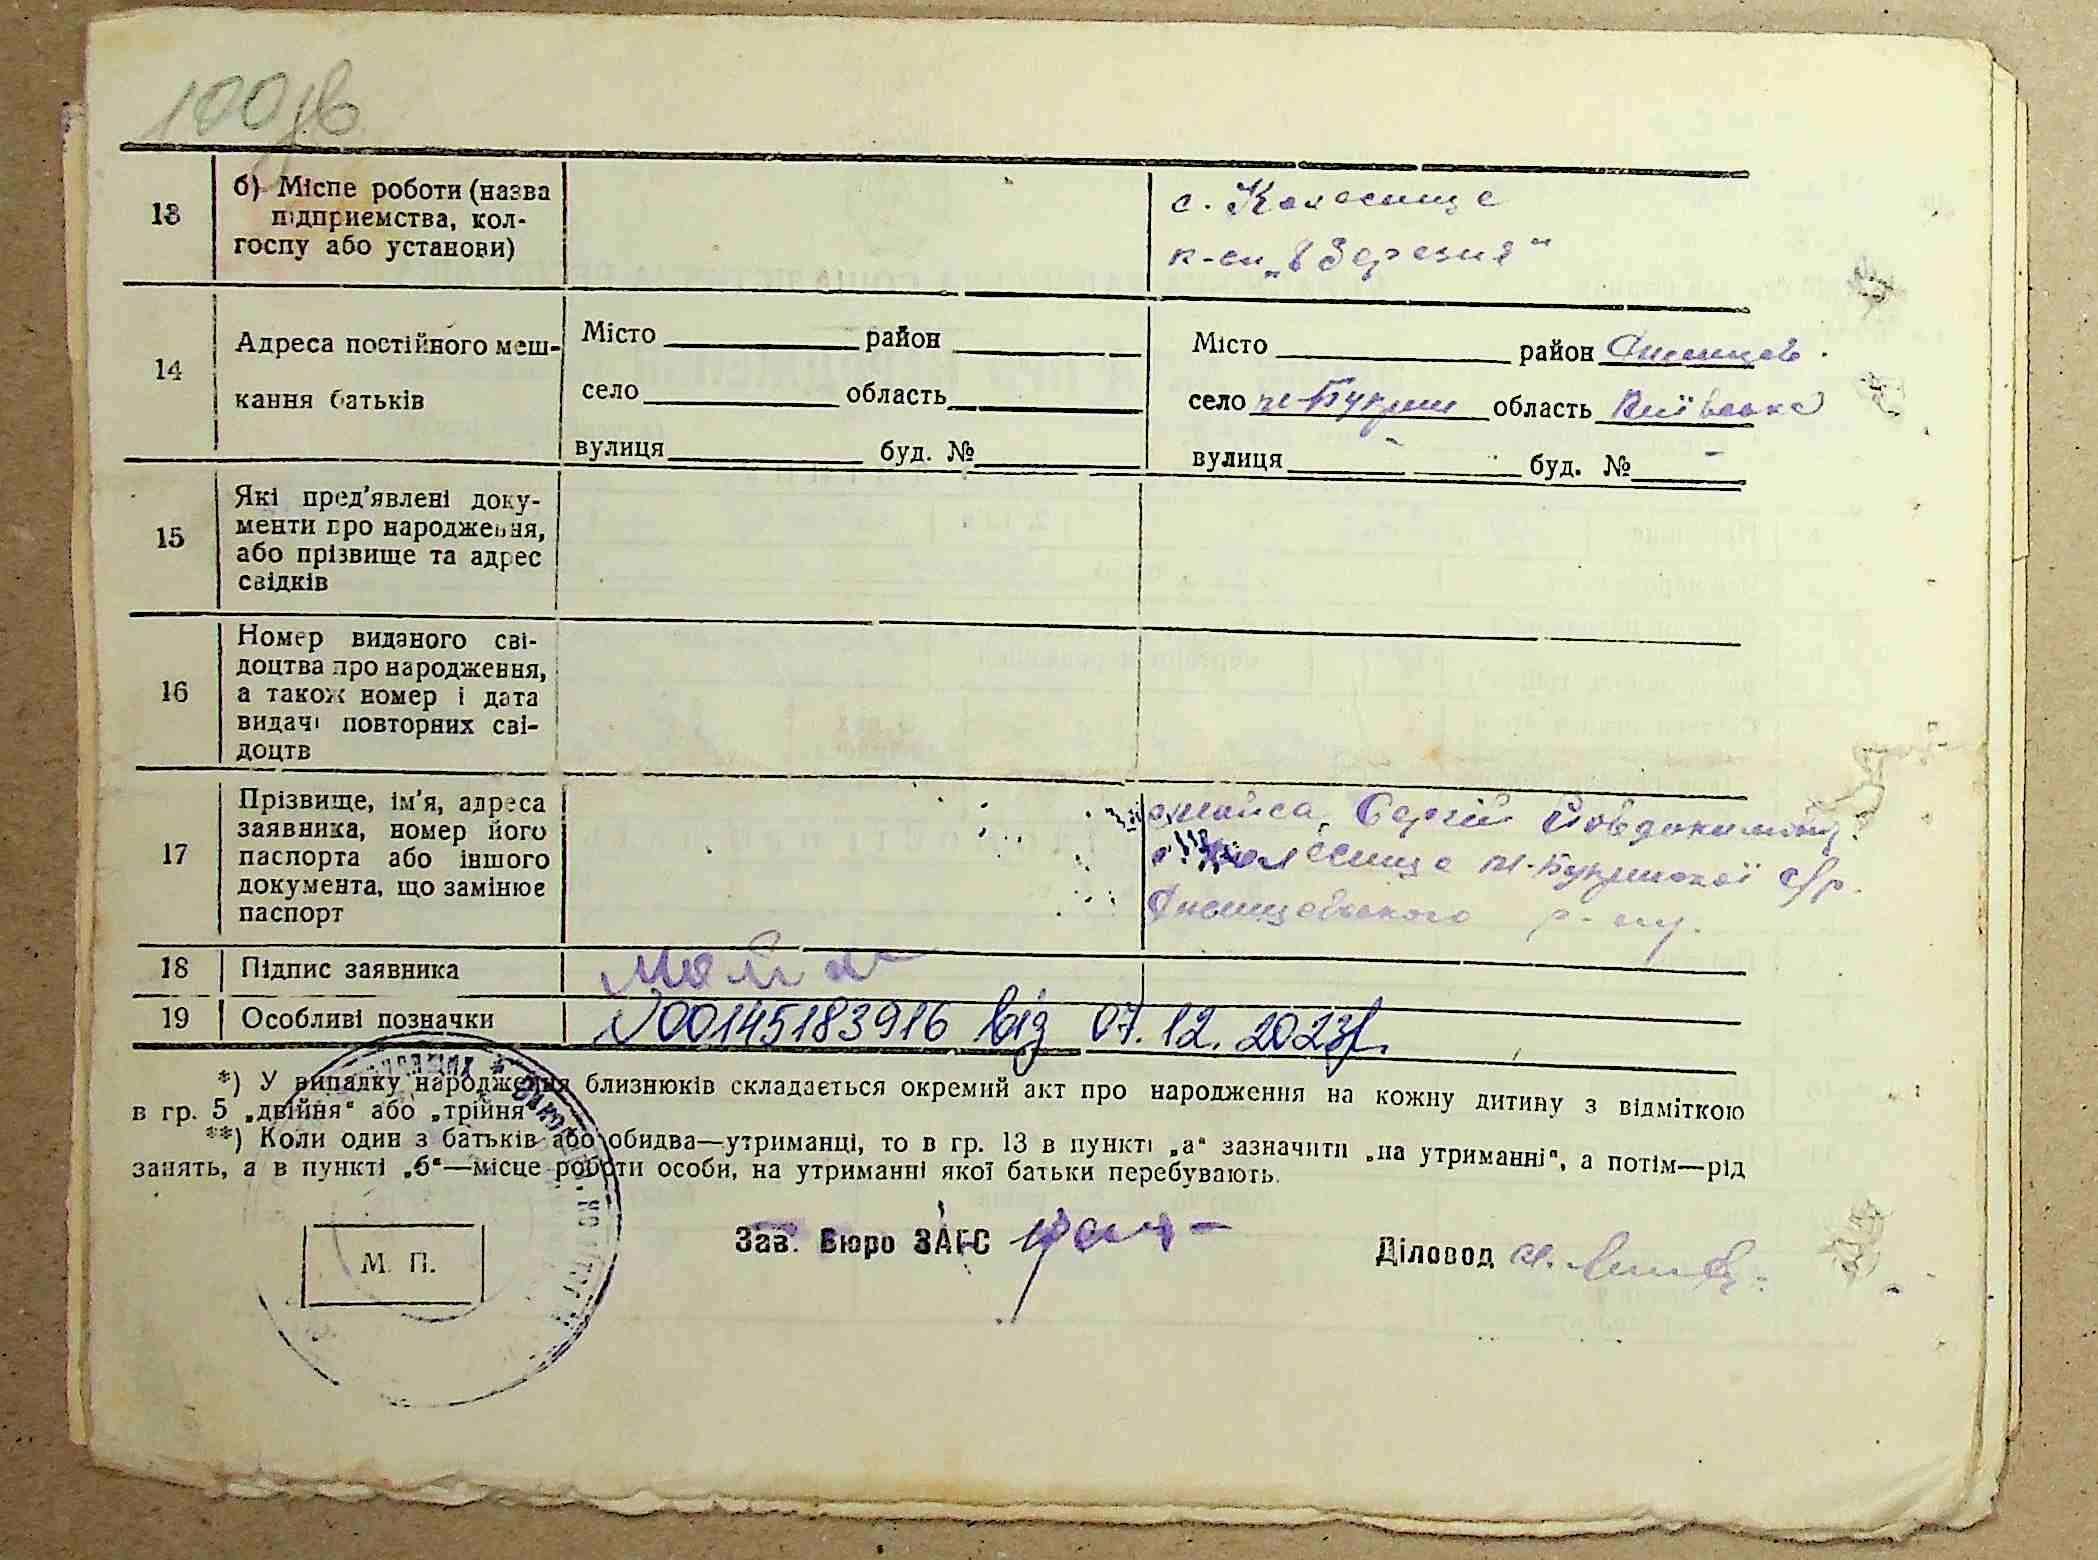 100зв
13
б) Місце роботи (назва
підприємства, кол-
госпу або установи)
с. Колесище
к-сп „8 Березня"
14
Адреса постійного меш-
кання батьків
Місто район
село область
вулиця буд. №
Місто район
село область Київська
вулиця буд. № -
15
Які пред'явлені доку-
менти про народження,
або прізвище та адрес
свідків
16
Номер виданого сві-
доцтва про народження,
а також номер і дата
видачі повторних сві-
доцтв
17
Прізвище, ім'я, адреса
заявника, номер його
паспорта або іншого
документа, що замінює
паспорт
Сергій
Колесище с/р.
р-ну.
18
Підпис заявника
19
Особливі позначки
№00145183916 від 07.12.2023р.
*) У випадку народження близнюків складається окремий акт про народження на кожну дитину з відміткою
в гр. 5 „двійня" або „трійня"
**) Коли один з батьків або обидва—утриманці, то в гр. 13 в пункті „а" зазначити „на утриманні", а потім—рід
занять, а в пункті „б"—місце роботи особи, на утриманні якої батьки перебувають.
М. П.
Зав. Бюро ЗАГС
Діловод